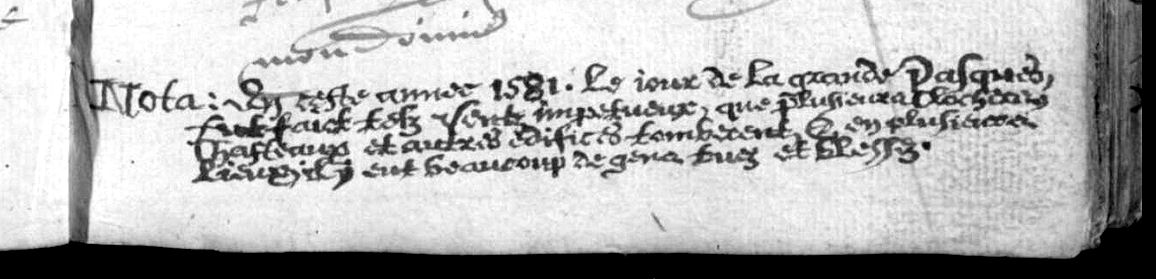 Nota: En ceste annee 1581. Le iour de la grande Pasques,
fut faict telz ventz impetueux, que plusieurs Clochers
Chasteaux et autres edifices tomberent, & en plusieurs
Lieux il y eut beaucoup de gens tuez et blessez.